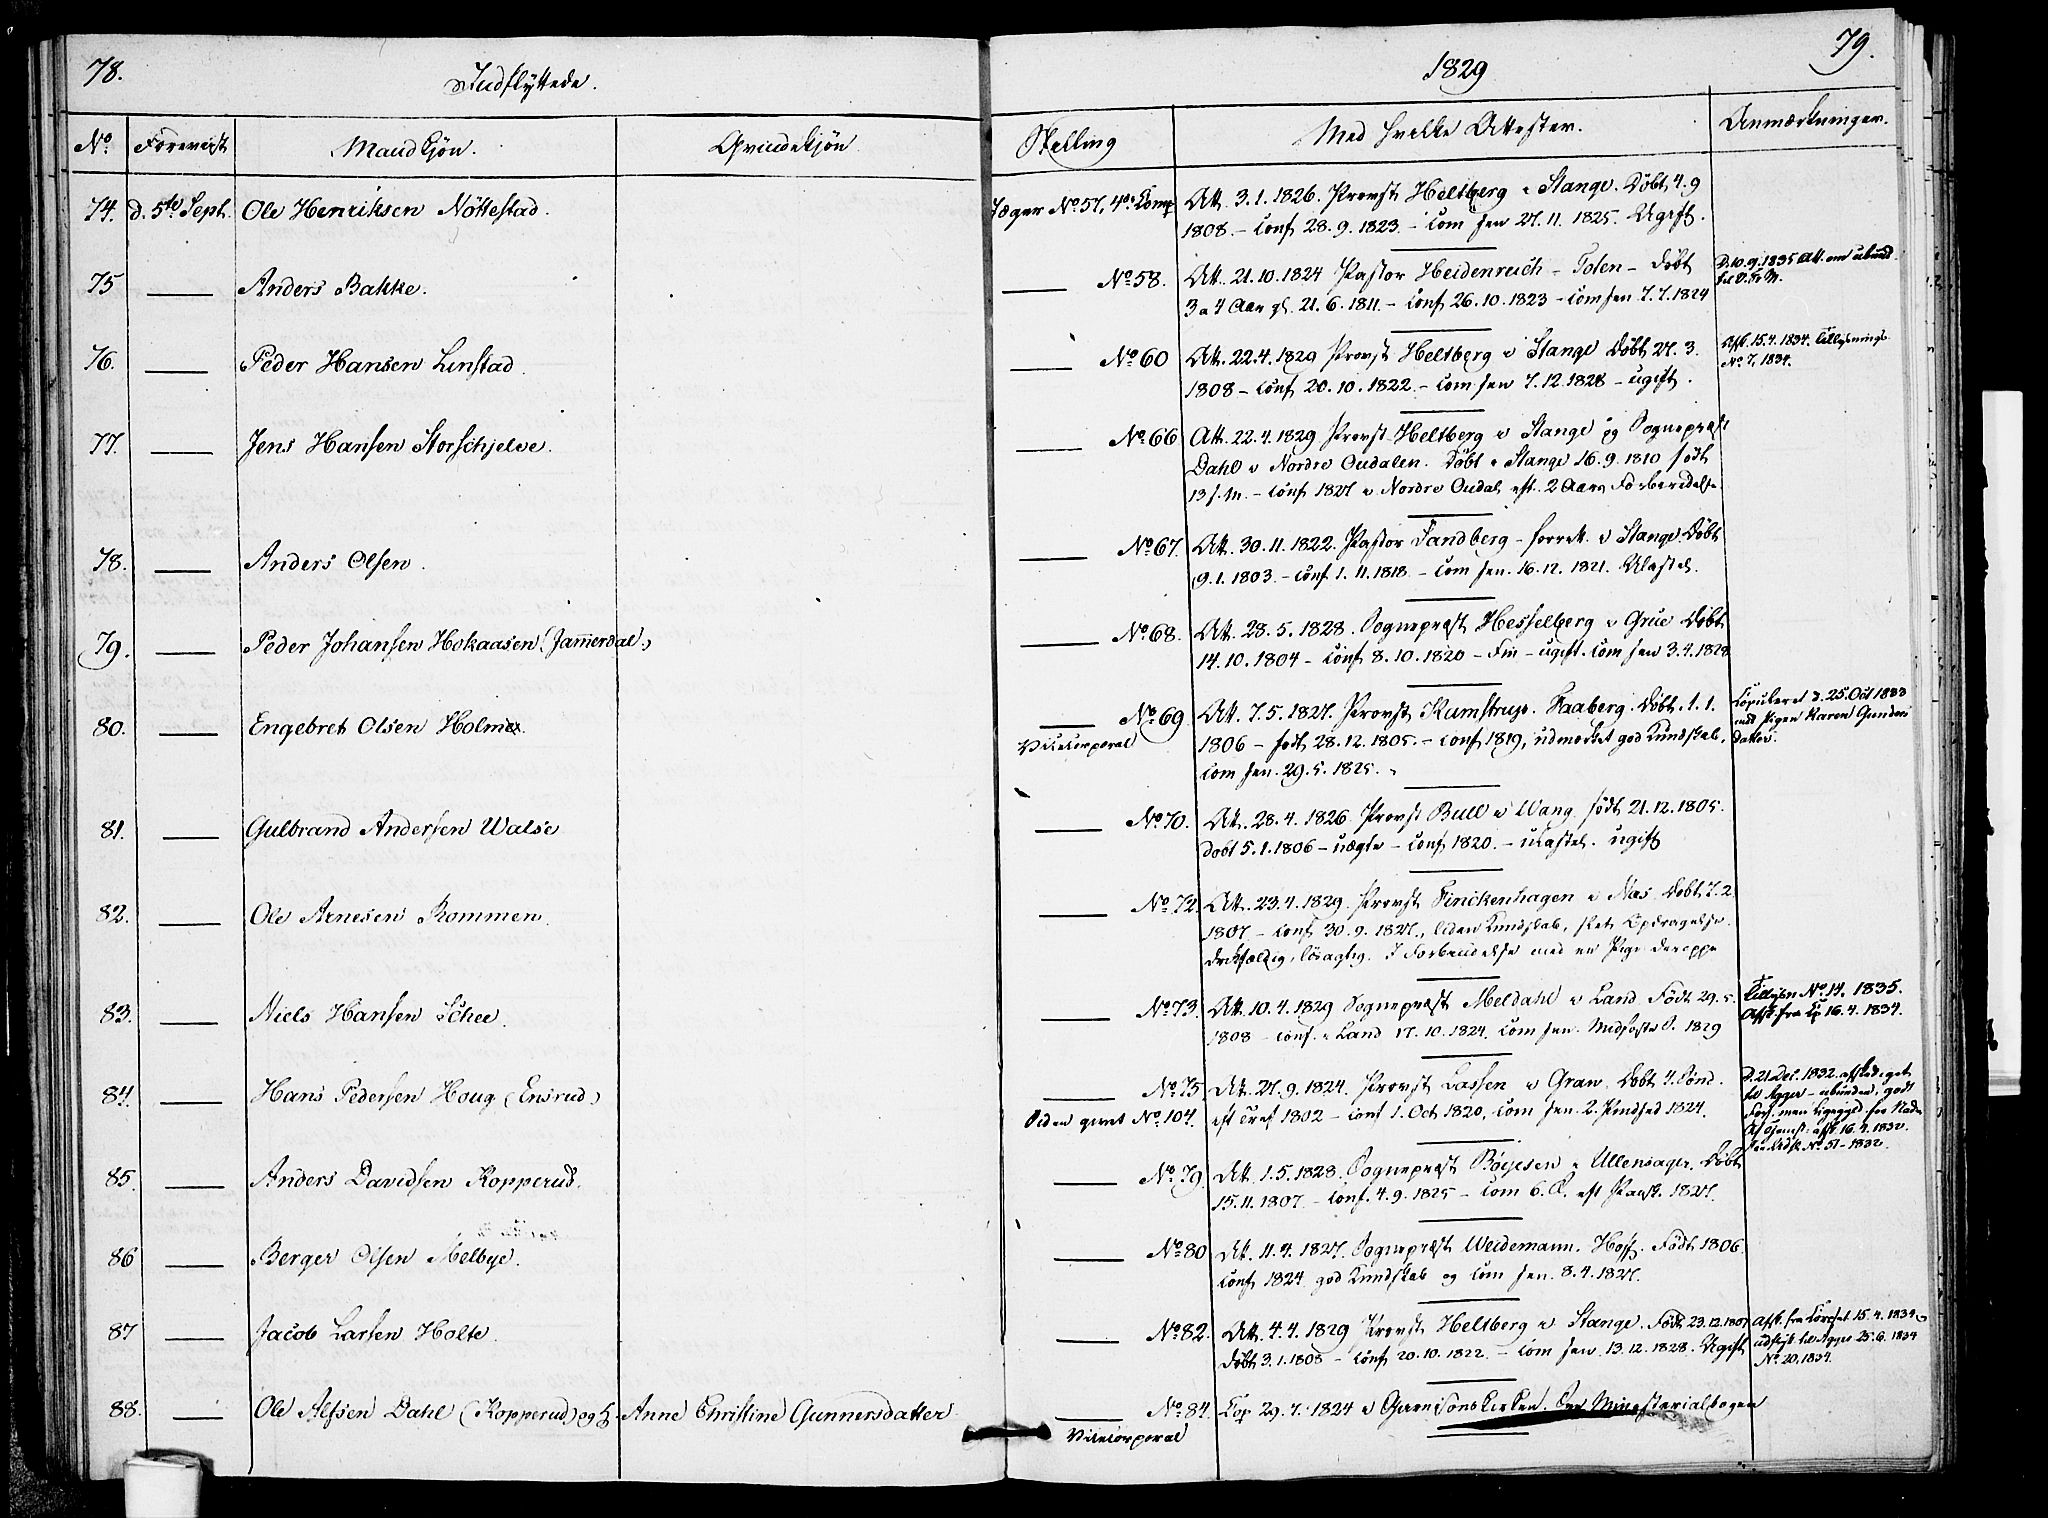 78.
Indflyttede.
No. Forevist Mandkjön. Qvindekjön
74. d. 5te Sept. Ole Henriksen Nöttestad.
75 Anders Bakke.
76. Peder Hansen Linstad.
77. Jens Hansen Storschjelve.
78. Anders Olsen.
79. Peder Johansen Hokaasen (Jammerdal.)
80. Engebret Olsen Holm
81. Gulbrand Andersen Walse
82. Ole Arnesen Rommen
83. Niels Hansen Schee.
84. Hans Pedersen Houg (Ensrud)
85. Anders Davidsen Kopperud.
86 Berger Olsen Melbye.
87 Jacob Larsen Holte.
88. Ole Alfsen Dahl (Kopperud) og H. Anne Christine Gunnersdatter
79.
1829
Stilling Med hvilke Attester. Anmærkninger.
Jæger No. 57, 4de Comp Att. 3.1.1826. Provst Heltberg i Stange. Döbt 4.9
1808. - Conf 28.9.1823. - Com sen 27.11.1825. Ugift.
No. 58. Att. 21.10.1824 Pastor Heidenreich - Toten - Döbt
3 a 4 Aar gl. 21.6.1811. - Conf 26.10.1823 - Com sen 7.7.1824
D. 10.9.1835 Att. om ubund.
No. 60 Att. 22.4.1829 Provst Heltberg i Stange Döbt 27.3.
1808 - Conf 20.10.1822. - Com sen 7.12.1828 - ugift.
Afsk. 15.4.1834. Tillysnings
No. 7, 1834.
No. 66 Att. 22.4.1829 Provst Heltberg i Stange og Sognepræst
Dahl i Nordre Oudalen. Döbt i Stange 16.9.1810 födt
13 s.M. - Conf 1827 i Nordre Oudal eft. 2 Aars Forberedelse
No. 67. Att. 30.11.1822. Pastor Sandberg - forrett. i Stange Döbt
9.1.1803. - Conf 1.11.1818 - Com sen. 16.12.1821. Ulastel.
No. 68. Att. 28.5.1828. Sognepræst Hesselberg i Grue Döbt
14.10.1804 - Conf 8.10.1820 - Fin - ugift. Com sen 3.4.1828
No. 69 Att. 7.5.1827. Provst Kumstrup. Faaberg. Döbt. 1.1.
Vicecorporal 1806 - födt 28.12.1805. - Conf 1819, udmerket god Kundskab,
Com sen. 29.5.1825.
Copuleret d. 25. Oct 1833
med Pigen Karen Gunders
datter.
No. 70. Att. 28.4.1826 Provst Bull i Wang födt 21.12.1805.
döbt 5.1.1806 - uægte - Conf 1820. - ulastel. ugift
No. 72 Att. 23.4.1829. Provst Finckenhagen i Næs. Döbt 7.2
1807 - Conf 30.9.1827., liden Kundskab, slet Opdragelse.
drikfældig, lösagtig. I Forbindelse med en Pige deroppe
No. 73. Att. 10.4.1829 Sognepræst Meldahl i Land Födt 29.5.
1808 - Conf. i Land 17.10.1824. Com sen. Midfaste S. 1829
Tillysn No. 14, 1835.
Afsk. fra Cp 16.4.1834.
No. 75 Att. 27.9.1824. Provst Lassen i Gran. Döbt 4. Sönd.
Siden givet No. 104. eft Tref 1802 - Conf 1. Oct 1820, Com sen. 2. Pindsed 1824.
D. 21 Dec. 1832. afskediget
til Agger - ubunden, godt
afsk 16.4.1832.
No. 51 - 1832.
No. 79. Att. 1.5.1828. Sognepræst Böyesen i Ullensager. Döbt
15.11.1807. - Conf. 4.9.1825 - Com 6. S. eft Paask. 1827.
No. 80 Att. 11.4.1827. Sognepræst Weidemann. Hoff. Födt 1806.
Conf 1824 god Kundskab og Com sen. 8.4.1827.
No. 82. Att. 4.4.1829 Provst Heltberg i Stange. Födt 23.12.1807
Döbt 3.1.1808 - Conf 20.10.1822. - Com sen 13.12.1828. Ugift
Afsk. fra Corpset 15.4.1834
udflyt. til Agger 25.6.1834
No. 20, 1834.
No. 84. Cop 29.7.1824 i Garnisonskirken. See Ministerialbogen
Vicecorporal